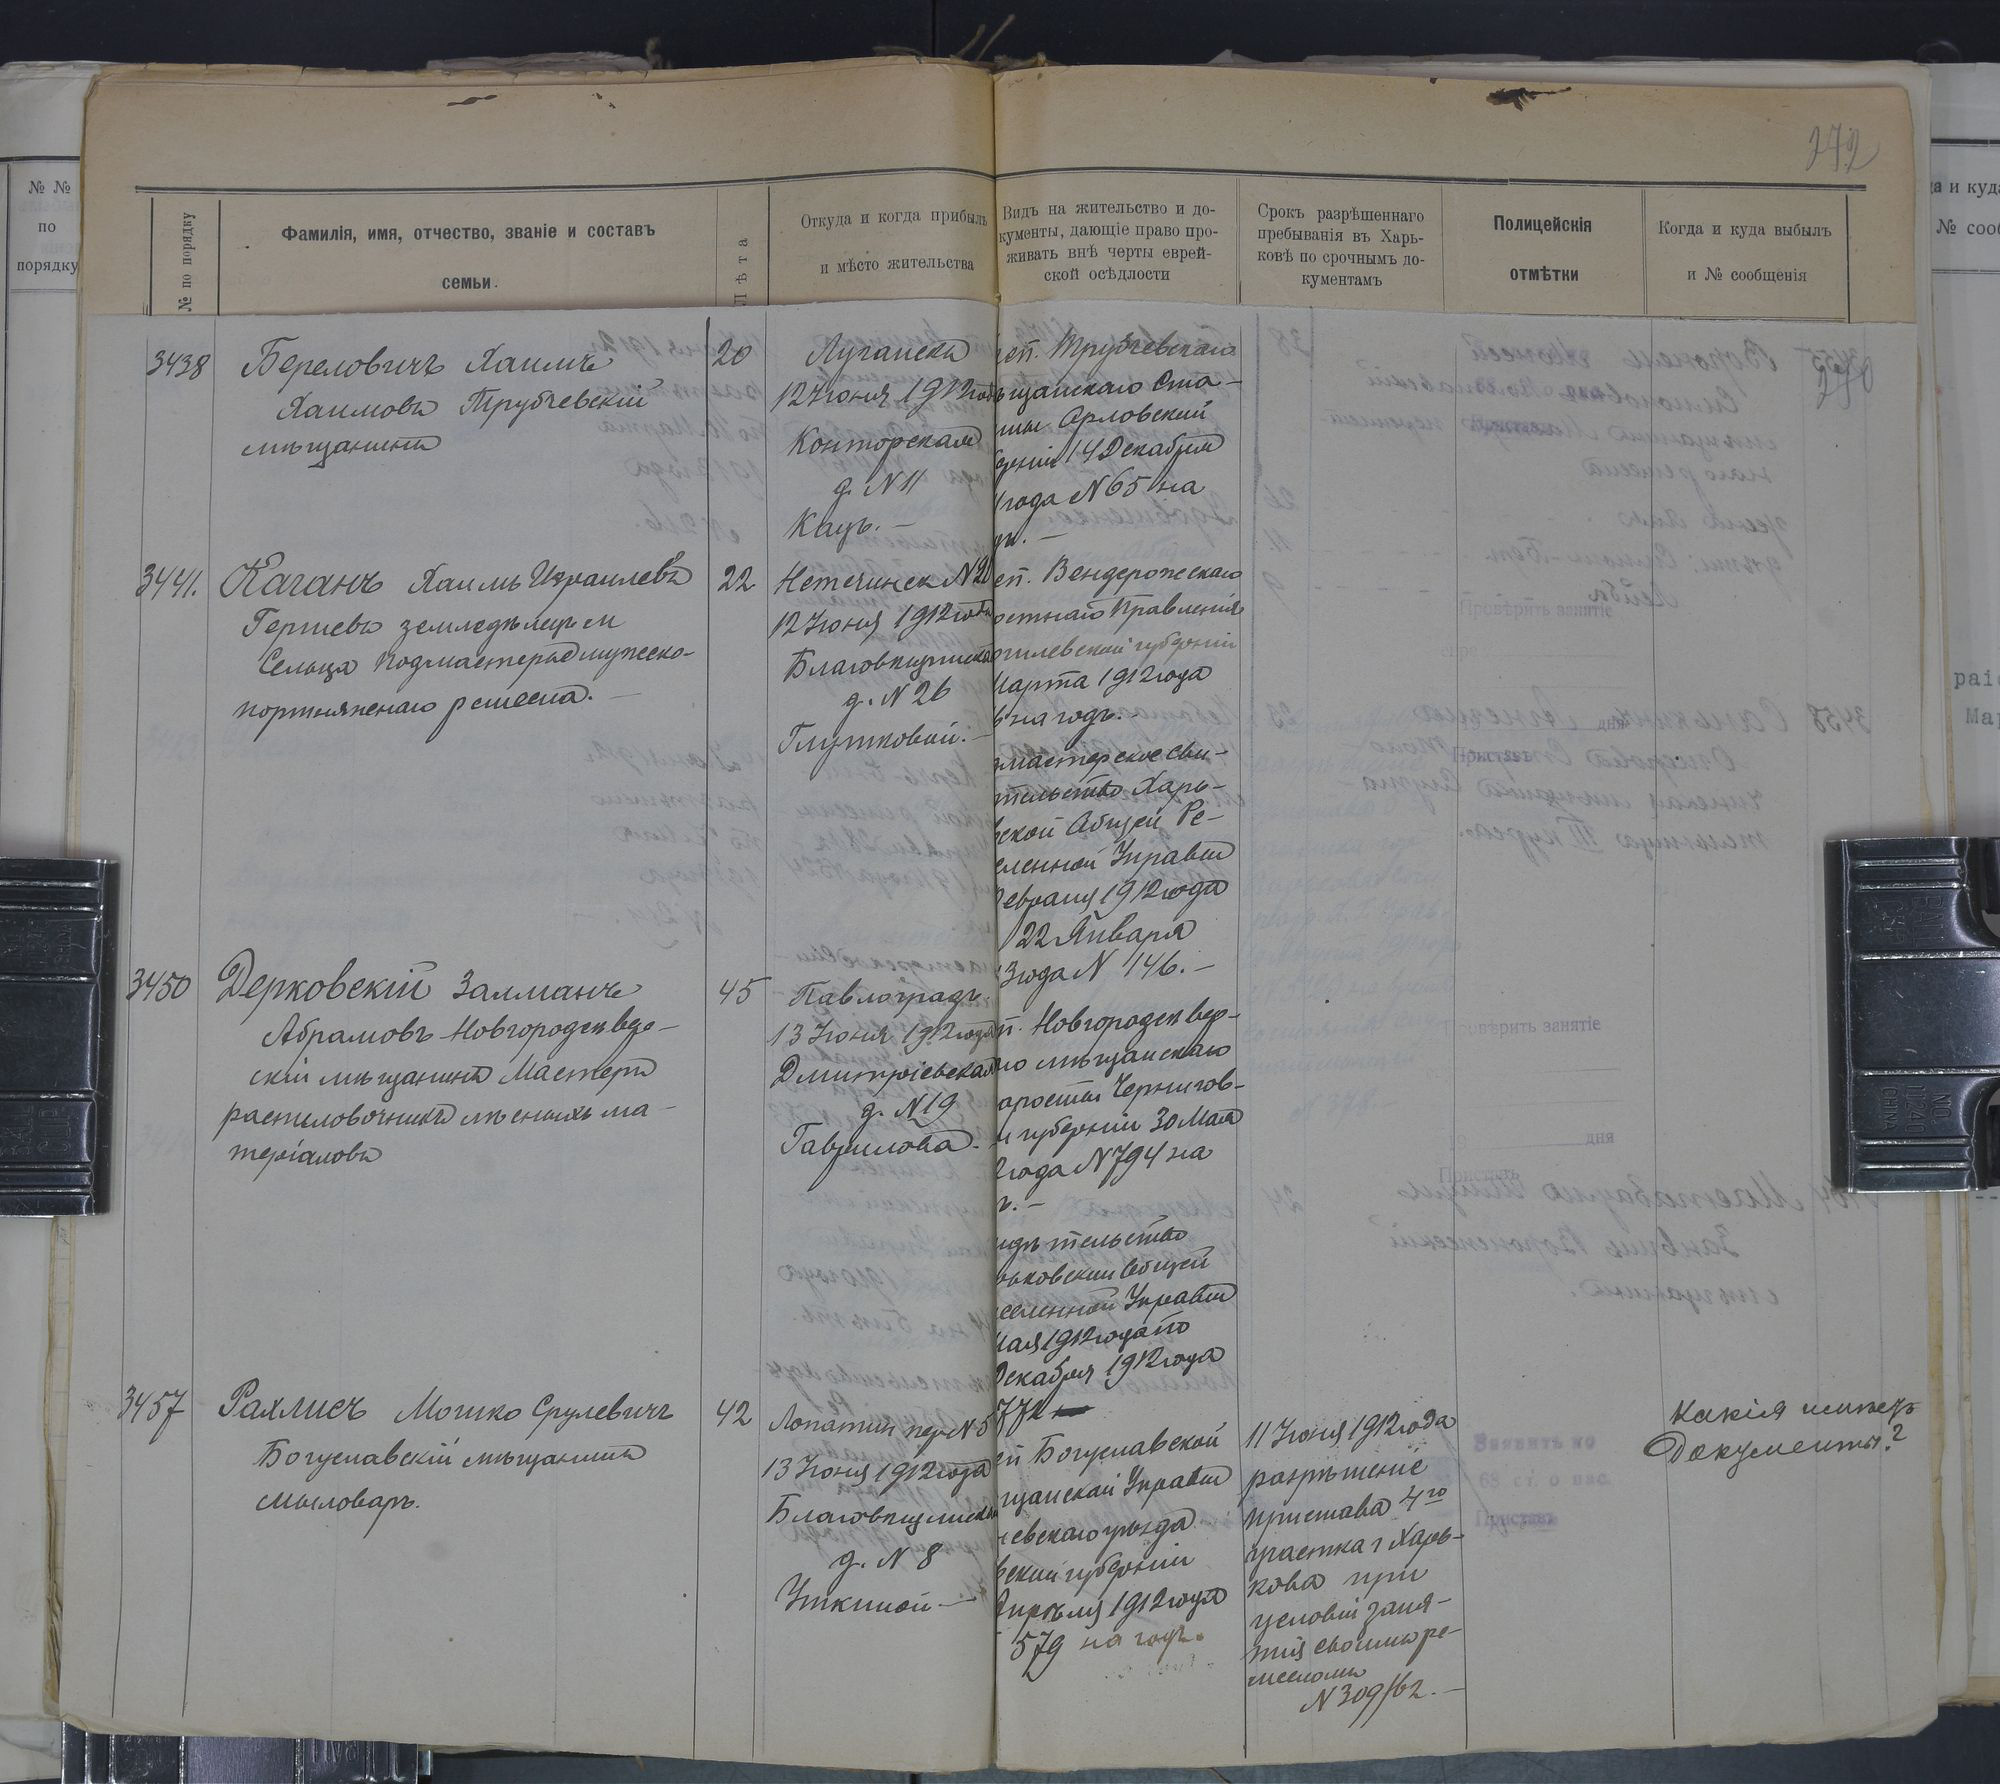 272
№ по порядку
Фамилія, имя, отчество, званіе и составъ
семьи.
Лѣта
Откуда и когда прибылъ
и мѣсто жительства
Видъ на жительство и до-
кументы, дающіе право про-
живать внѣ черты еврей-
ской осѣдлости
Срокъ разрѣшеннаго
пребыванія въ Харь-
ковѣ по срочнымъ до-
кументамъ
Полицейскія
отмѣтки
Когда и куда выбылъ
и № сообщенія
№ №
по
порядку
3438
Береловичъ Хаимъ
Хаимовъ Трубчевскій
мѣщанинъ
20
Луганска
12 Іюня 1912 года
Конторская
д. N 11
Кацъ.-
Трубчевскаго
щанскаго Ста-
ны Орловской
14 Декабря
года N 65 на
3441.
Каганъ Хаимъ Израилевъ
Гершевъ земледѣлецъ м
Сельца подмастерье мужеско-
портняжнаго ремесла.-
22
Нетечинск N 20
12 Іюня 1912 года
Благовѣщенская
д. N 26
Глушковой.-
еп. Вендерожскаго
остнаго Правленія
гилевской губерніи
Марта 1912 года
на годъ.-
мастерское сви-
тельство Харь-
вской Общей Ре-
сленной Управы
Февраля 1912 года
22 Января
3 года N 146.-
3450
Дерковскій Залманъ
Абрамовъ Новгородсѣвер-
скій мѣщанинъ Мастеръ
распиловочникъ лѣсныхъ ма-
теріаловъ
45
Павлоградъ
13 Іюня 1912 года
Дмитріевская
д. N 19
Гаврилова.-
п. Новгородсѣвер-
го мѣщанскаго
аросты Чернигов-
й губерніи 30 Мая
2 года N 794 на
ъ.-
идѣтельство
рьковской Общей
есленной Управы
Мая 1912 года по
Декабря 1912 года
772
3457
Рахлисъ Мошко Срулевичъ
Богуславскій мѣщанинъ
мыловаръ.
42
Лопатин пер N 5
13 Іюня 1912 года
Благовѣщенская
д. N 8
Уткиной-
ей Богуславской
щанской Управы
невскаго уѣзда
вской губерніи
Апрѣля 1912 года
579 на годъ.
11 Іюня 1912 года
разрѣшеніе
пристава 4го
участка г Харь-
кова при
условіи заня-
тія своимъ ре-
месломъ
N 309/62.-
Пристав
Какія имѣетъ
документы?